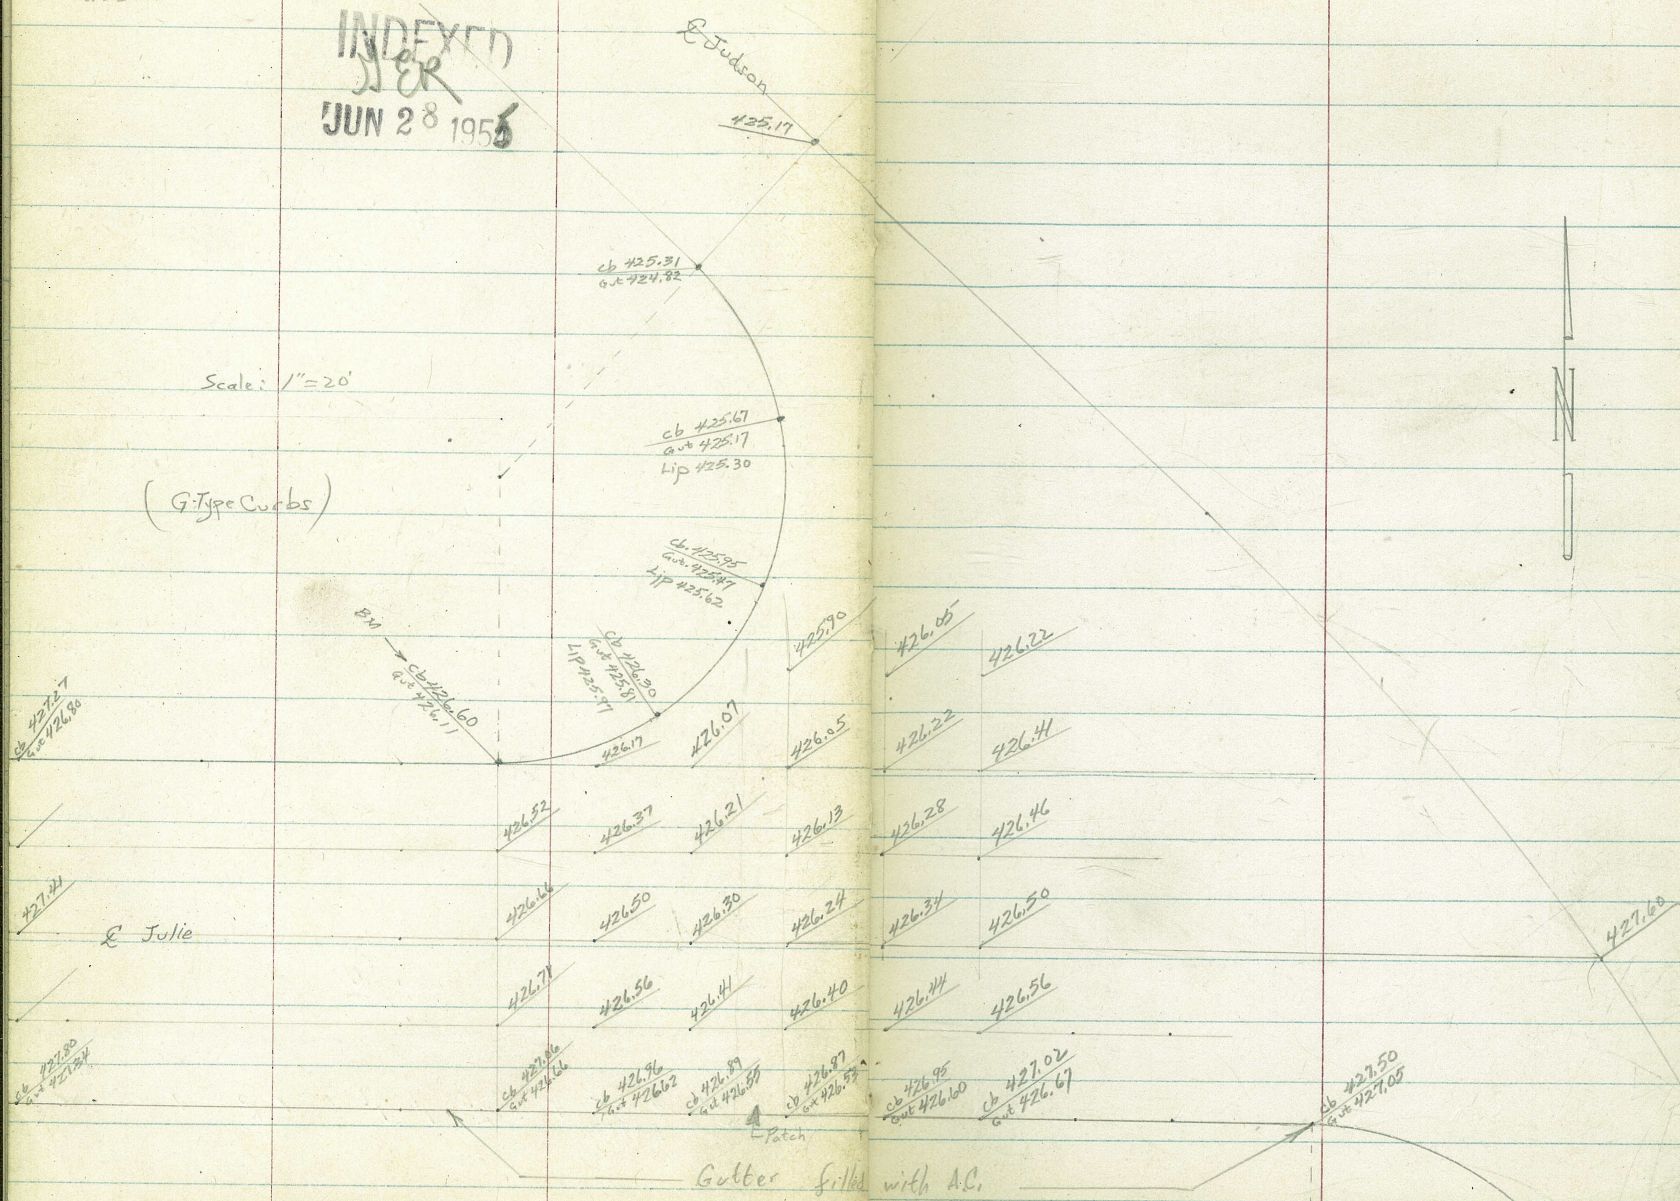 INDEXED
JER
JUN 28 1955
℄ Judson
425.17
cb 425.31
Gut 424.82
Scale: 1"=20'
cb 425.67
Gut 425.17
Lip 425.30
(G-Type Curbs)
cb. 425.95
Gut. 425.47
Lip 425.62
BM
cb 426.60
Gut 426.11
cb 426.30
Gut 425.81
Lip 425.97
425.90
426.05
426.22
cb 427.27
Gut 426.80
426.17
426.07
426.05
426.22
426.41
426.52
426.37
426.21
426.13
426.28
426.46
427.41
426.66
426.50
426.30
426.24
426.34
426.50
427.60
℄ Julie
426.71
426.56
426.41
426.40
426.44
426.56
cb 427.80
Gut 427.34
cb 427.06
Gut 426.66
cb 426.96
Gut 426.62
cb 426.89
Gut 426.55
cb 426.87
Gut 426.53
cb 426.95
Gut 426.60
cb 427.02
Gut 426.67
cb 427.50
Gut 427.05
Patch
Gutter filled with A.C.
N